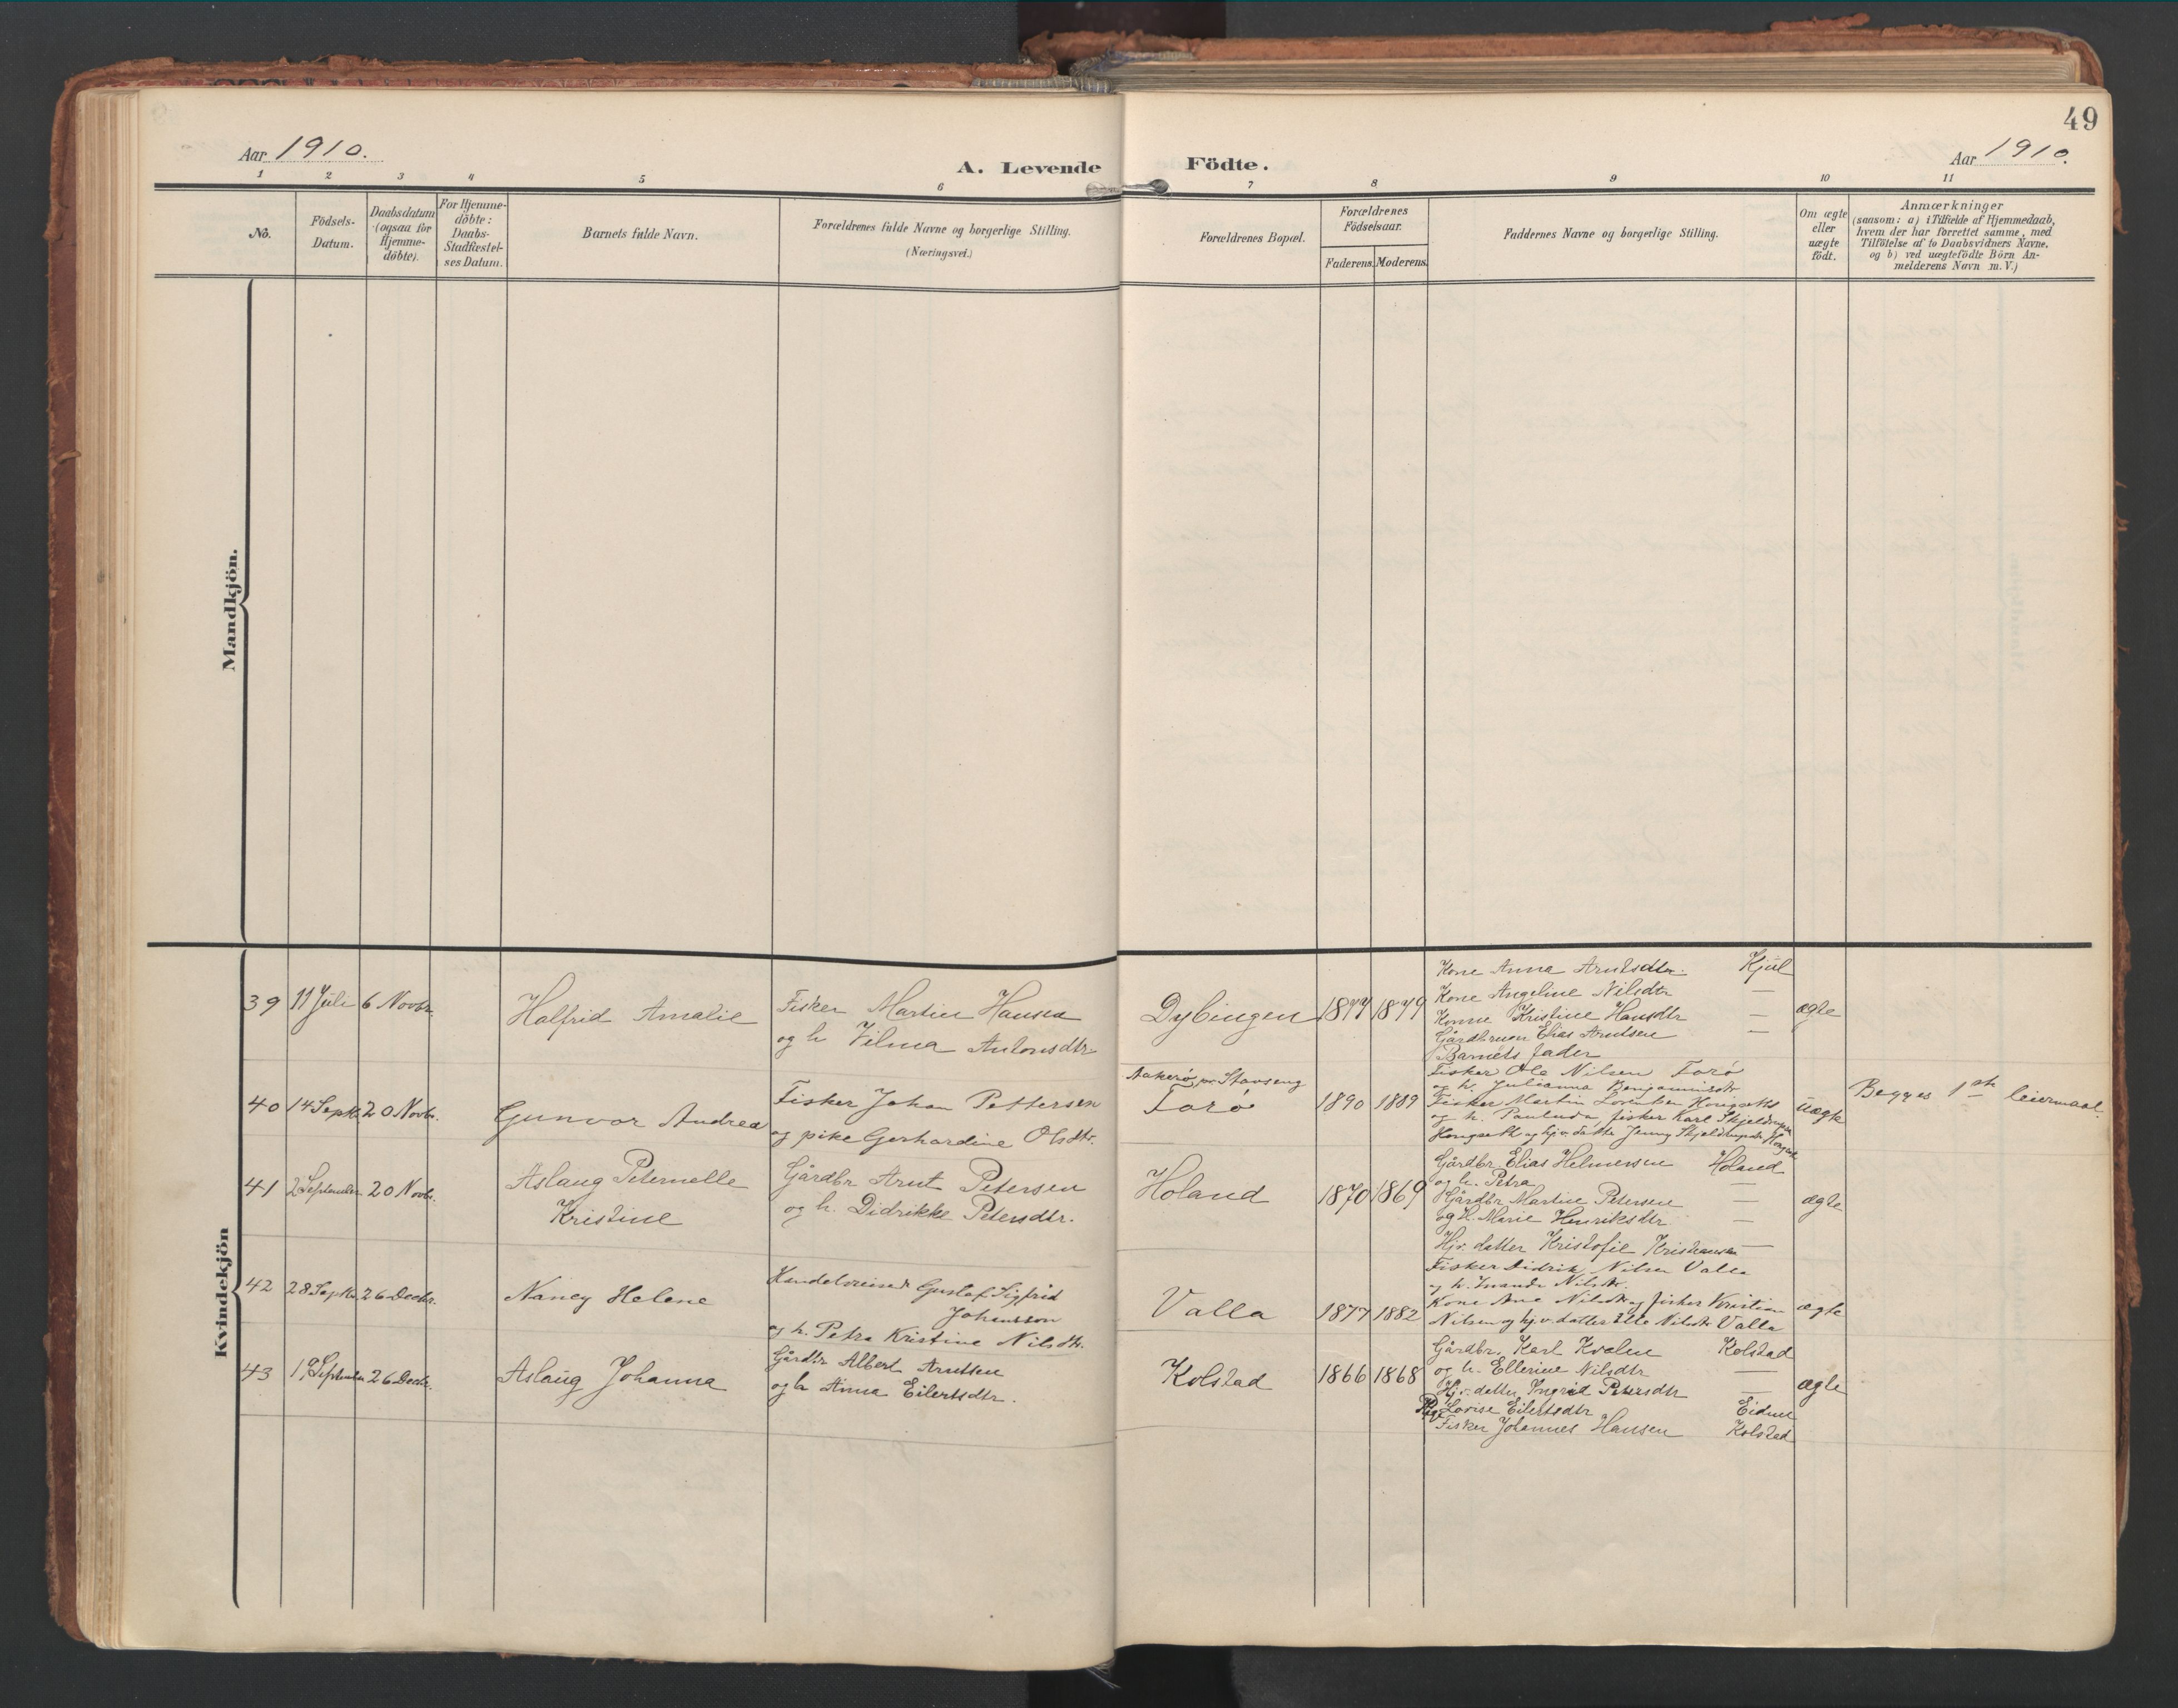 49
Aar 1910.
A. Levende Födte.
Aar 1910.
1 2 3 4 5 6 7 8 9 10 11
No.
Födsels-Datum.
Daabsdatum (ogsaa for Hjemme-döbte).
For Hjemme-döbte: Daabs-Stadfæstel-ses Datum.
Barnets fulde Navn.
Forældrenes fulde Navne og borgerlige Stilling.
(Næringsvei.)
Forældrenes Bopæl.
Forældrenes Födselsaar.
Faderens. Moderens.
Faddernes Navne og borgerlige Stilling.
Om ægte eller uægte födt.
Anmærkninger
(saasom: a) i Tilfælde af Hjemmedaab,
hvem der har forrettet samme, med
Tilföielse af to Daabsvidners Navne,
og b) ved uægtefödte Börn An-
melderens Navn m. V.)
Mandkjön.
Kvindekjön
39 11 Juli 6 Novbr.
Halfrid Amalie
Fisker Martin Hansen
og h Vilma Antonsdtr
Dybingen
1877 1879
Kone Anna Arntsdtr. Kjul
Kone Angeline Nilsdtr —
Konne Kristine Hansdtr —
Gårdbruger Elias Arntsen —
Barnets fader
ægte
40 14 Septbr. 20 Novbr.
Gunvor Andrea
Fisker Johan Pettersen
og pike Gerhardine Olsdtr.
Aakerø pr Stavseng
Torø
1890 1889
Fisker Ole Nilsen Torø
og h. Julianna Benjaminsdtr
Fisker Martin Lorentsen Hongseth
og h. Paulinda, fisker Karl Skjeldrupsen
Hongseth og hj.v. datter Jenny Skjeldrupsdtr Hongset
uægte
Begges 1ste leiermaal.
41 2 September 20 Novbr.
Aslaug Peternelle
Kristine
Gårdbr Arnt Petersen
og h. Didrikke Petersdtr.
Holand
1870 1869
Gårdbr. Elias Helmersen Holand
og h. Petra —
Gårdbr Martin Petersen —
og h. Marie Henriksdtr —
Hjv. datter Kristofie Kristiansen —
ægte
42 28 Septbr. 26 Decbr.
Nancy Helene
Handelsreisende Gustaf Sigfrid
Johansson
og h. Petra Kristine Nilsdtr.
Valla
1877 1882
Fisker Didrik Nilsen Valla
og h. Nilsdtr.
Kone Ane Nilsdtr og fisker Kristian
Nilsen og hj.v. datter Elle Nilsdtr Valla
ægte
43 19 September 26 Decbr.
Aslaug Johanna
Gårdbr Albert Arntsen
og h Anna Eilertsdtr.
Kolstad
1866 1868
Gårdbr. Karl Kvalen Kolstad
og h. Ellerine Nilsdtr —
Hjv. datter Ingrid Petersdtr —
Pige Lovise Eilertsdtr Eidem
Fisker Johannes Hansen Kolstad
ægte